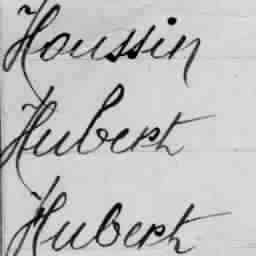 Houssin
Hubert
Hubert